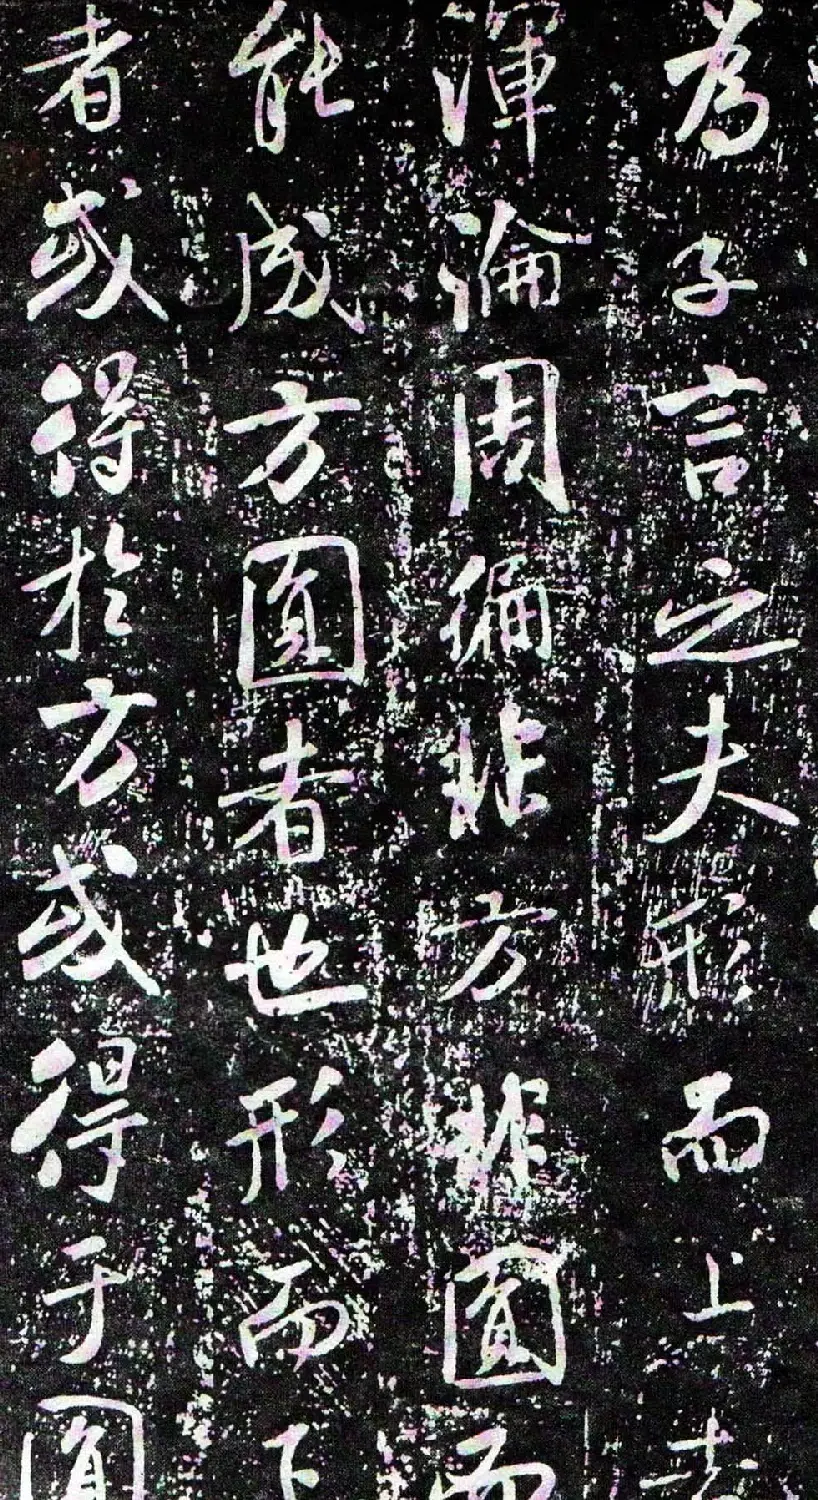 為子言之夫形而上者
渾淪周徧非方非圓而
能成方圓者也形而下
者或得於方或得于圓